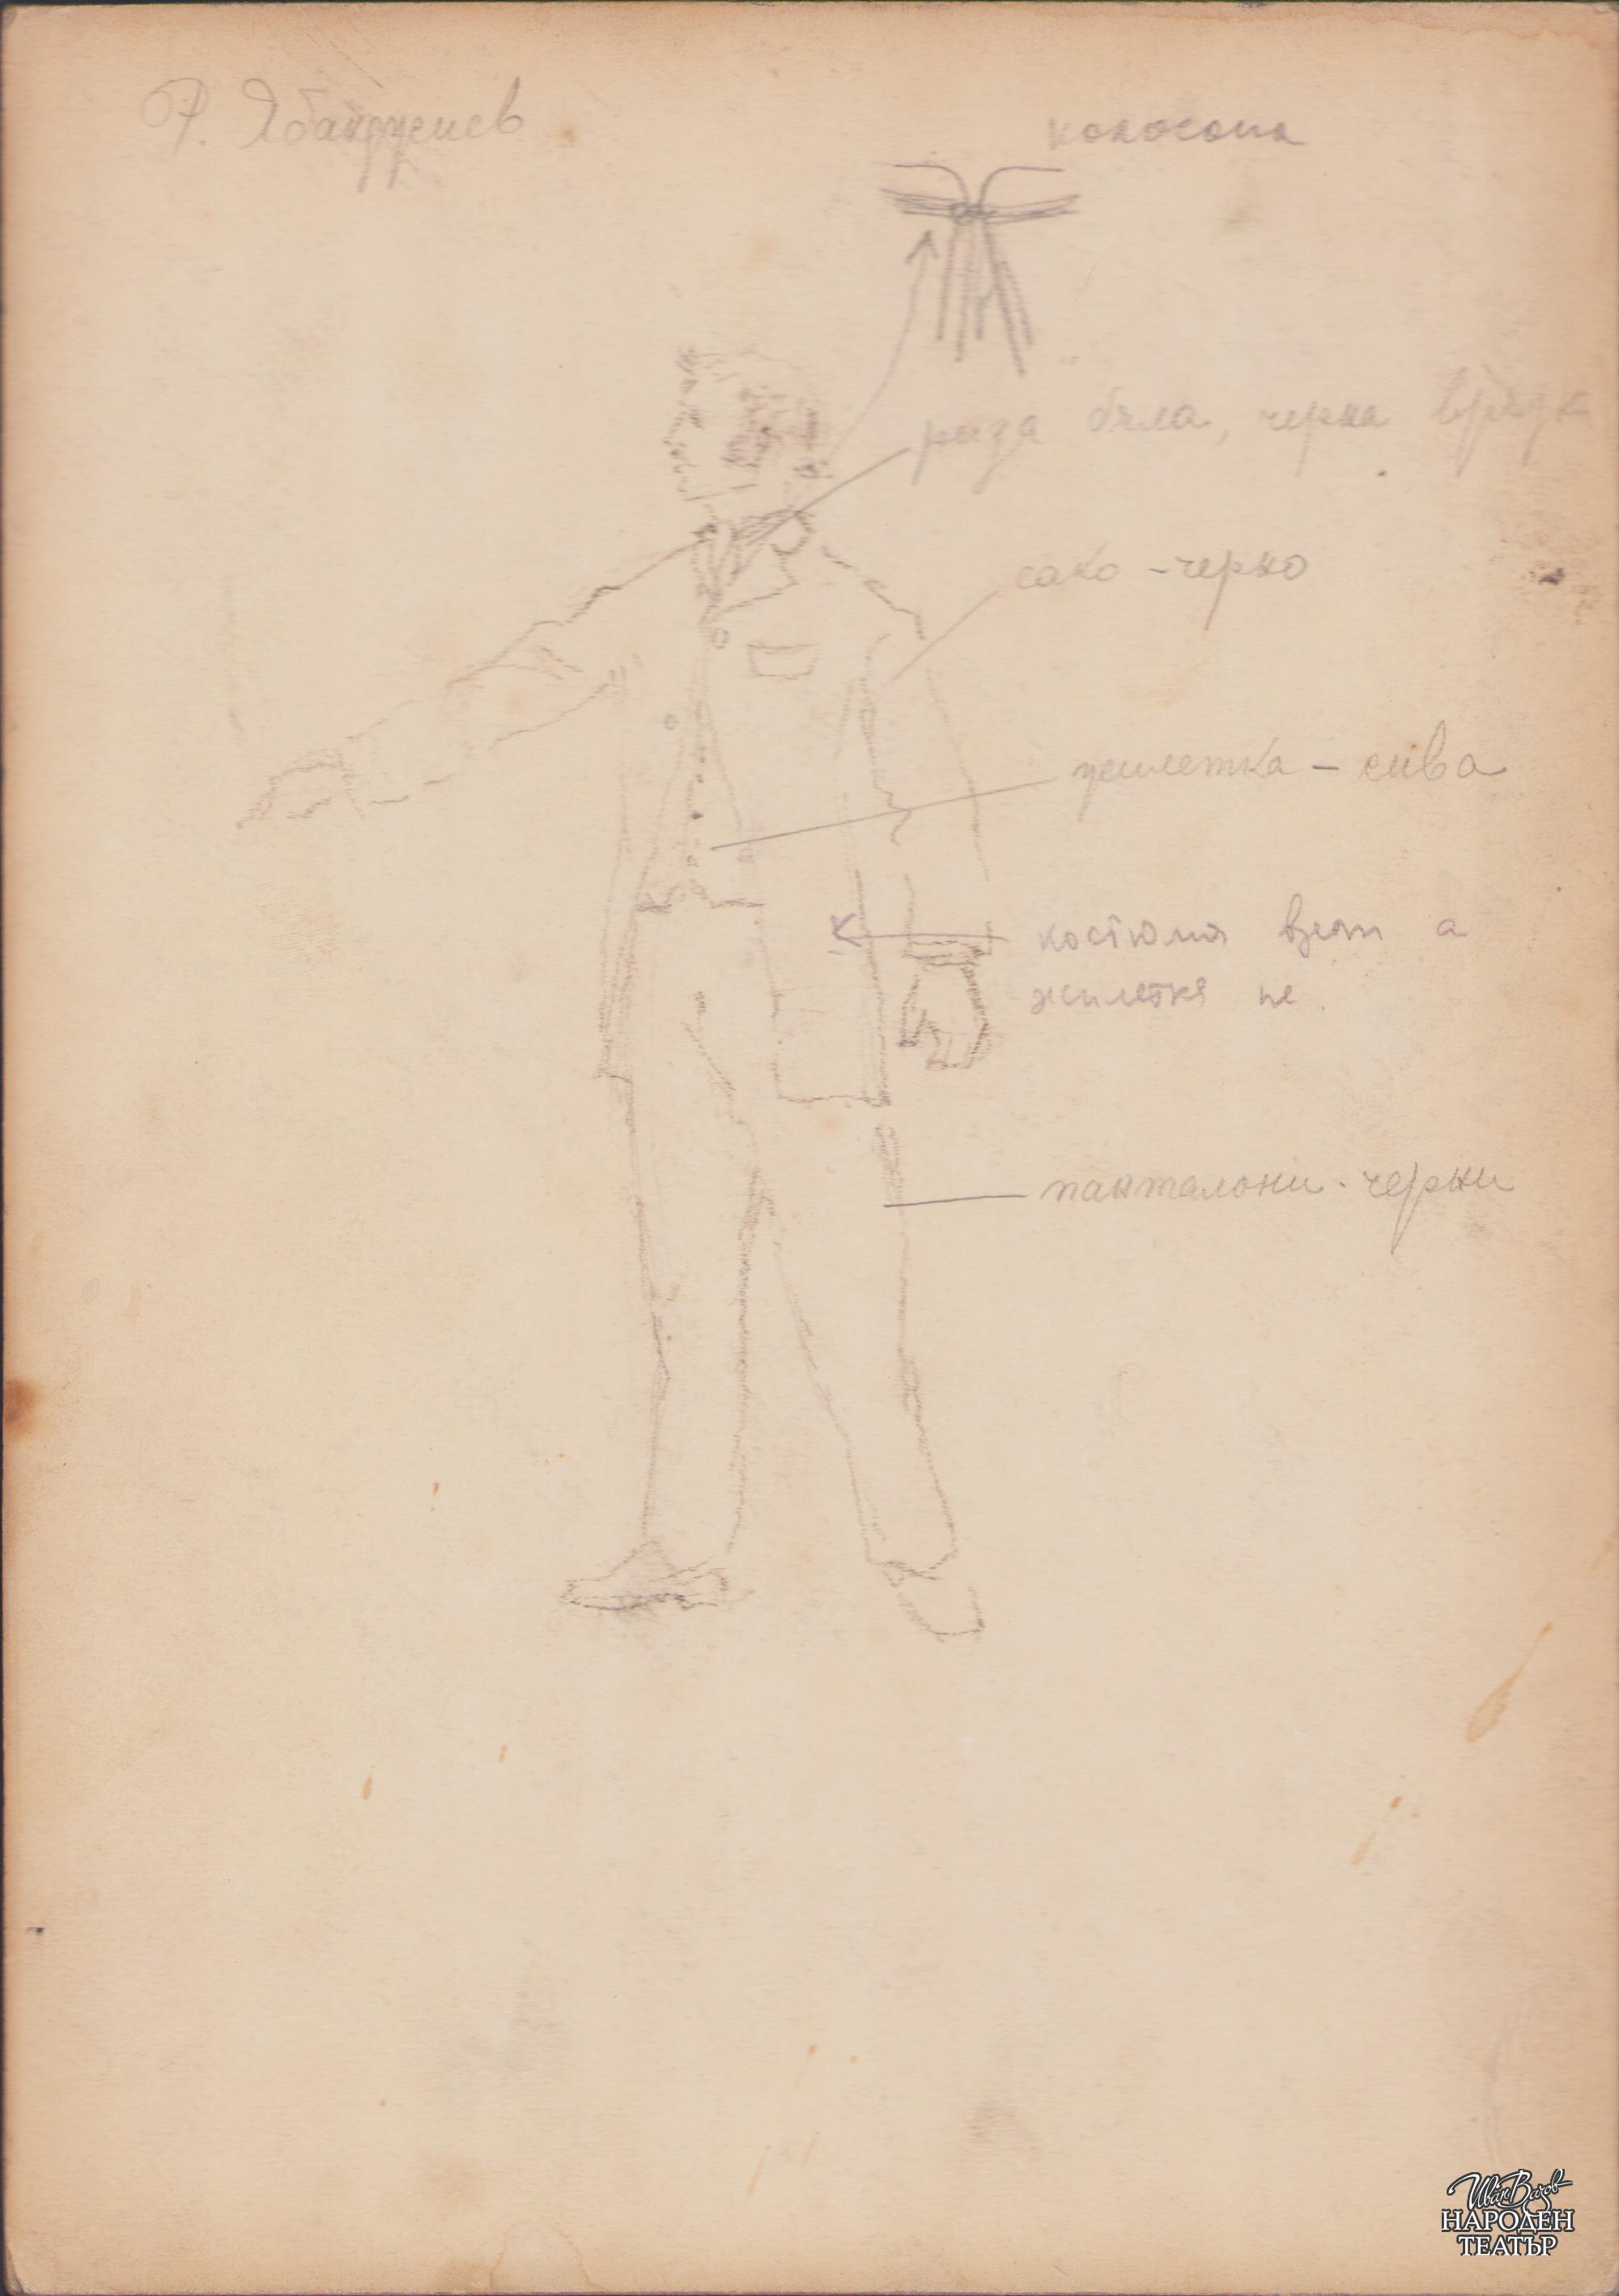 Р. Ябанджиев
риза бяла, черна връзк
сако - черно
жилетка - сива
костюма взет а
жилетка не
панталони - черни
Иван Вазов
НАРОДЕН
ТЕАТЪР